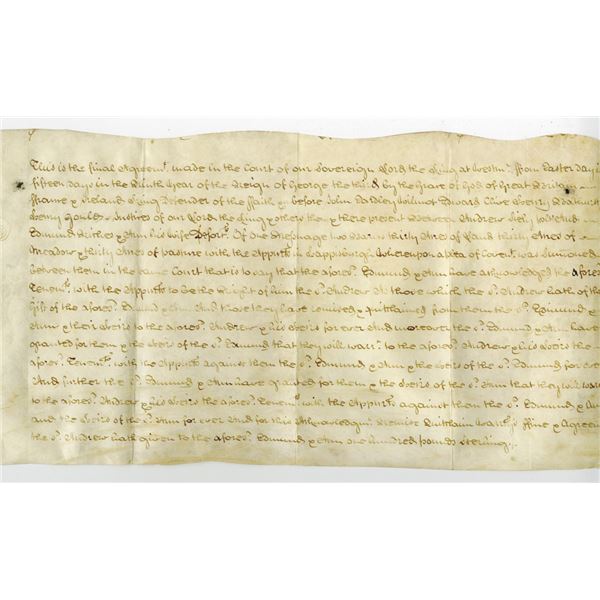 This is the final Agreemt. made in the Court of our Sovereign Lord the King at Westmr. from Easter day in
fifteen days in the Ninth Year of the Reign of George the third by the Grace of God of Great Britain
ffrance & Ireland King Defender of the ffaith &c before John Eardley Wilmot Edward Clive Henry Bathurst
Henry Gould Justices of our Lord the King & others then & there present Between Andrew
Edmund & Ann his wife Deforts. Of one Messuage two Barns thirty Acres of Land thirty Acres of
Meadow & thirty Acres of pasture with the Appurts. in Whereupon a plea of Covent. was Summoned
between them in the same Court that is to say that the afores. Edmund & Ann have acknowledged the afores
Tenemts. with the Appurts. to be the Right of him the s. Andrew As those which the s. Andrew hath of the
Gift of the afores. Edmund & Ann And those they have remised & quitclaimed from them the s. Edmund &
Ann & their Heirs to the afores. Andrew & his Heirs for ever And moreover the s. Edmund & Ann have
granted for them & the Heirs of the s. Edmund that they will warrt. to the afores. Andrew & his Heirs the
afores. Tenemts. with the Appurts. against them the s. Edmund & Ann & the Heirs of the s. Edmund for ever
And further the s. Edmund & Ann have granted for them & the Heirs of the s. Ann that they will warr
to the afores. Andrew & his Heirs the afores. Tenemts. with the Appurts. against them the s. Edmund & Ann
and the Heirs of the s. Ann for ever And for this Acknowledgmt. Remise Quitclaim Warrts. ffine & Agreem
the s. Andrew hath given to the afores. Edmund & Ann one hundred pounds Sterling